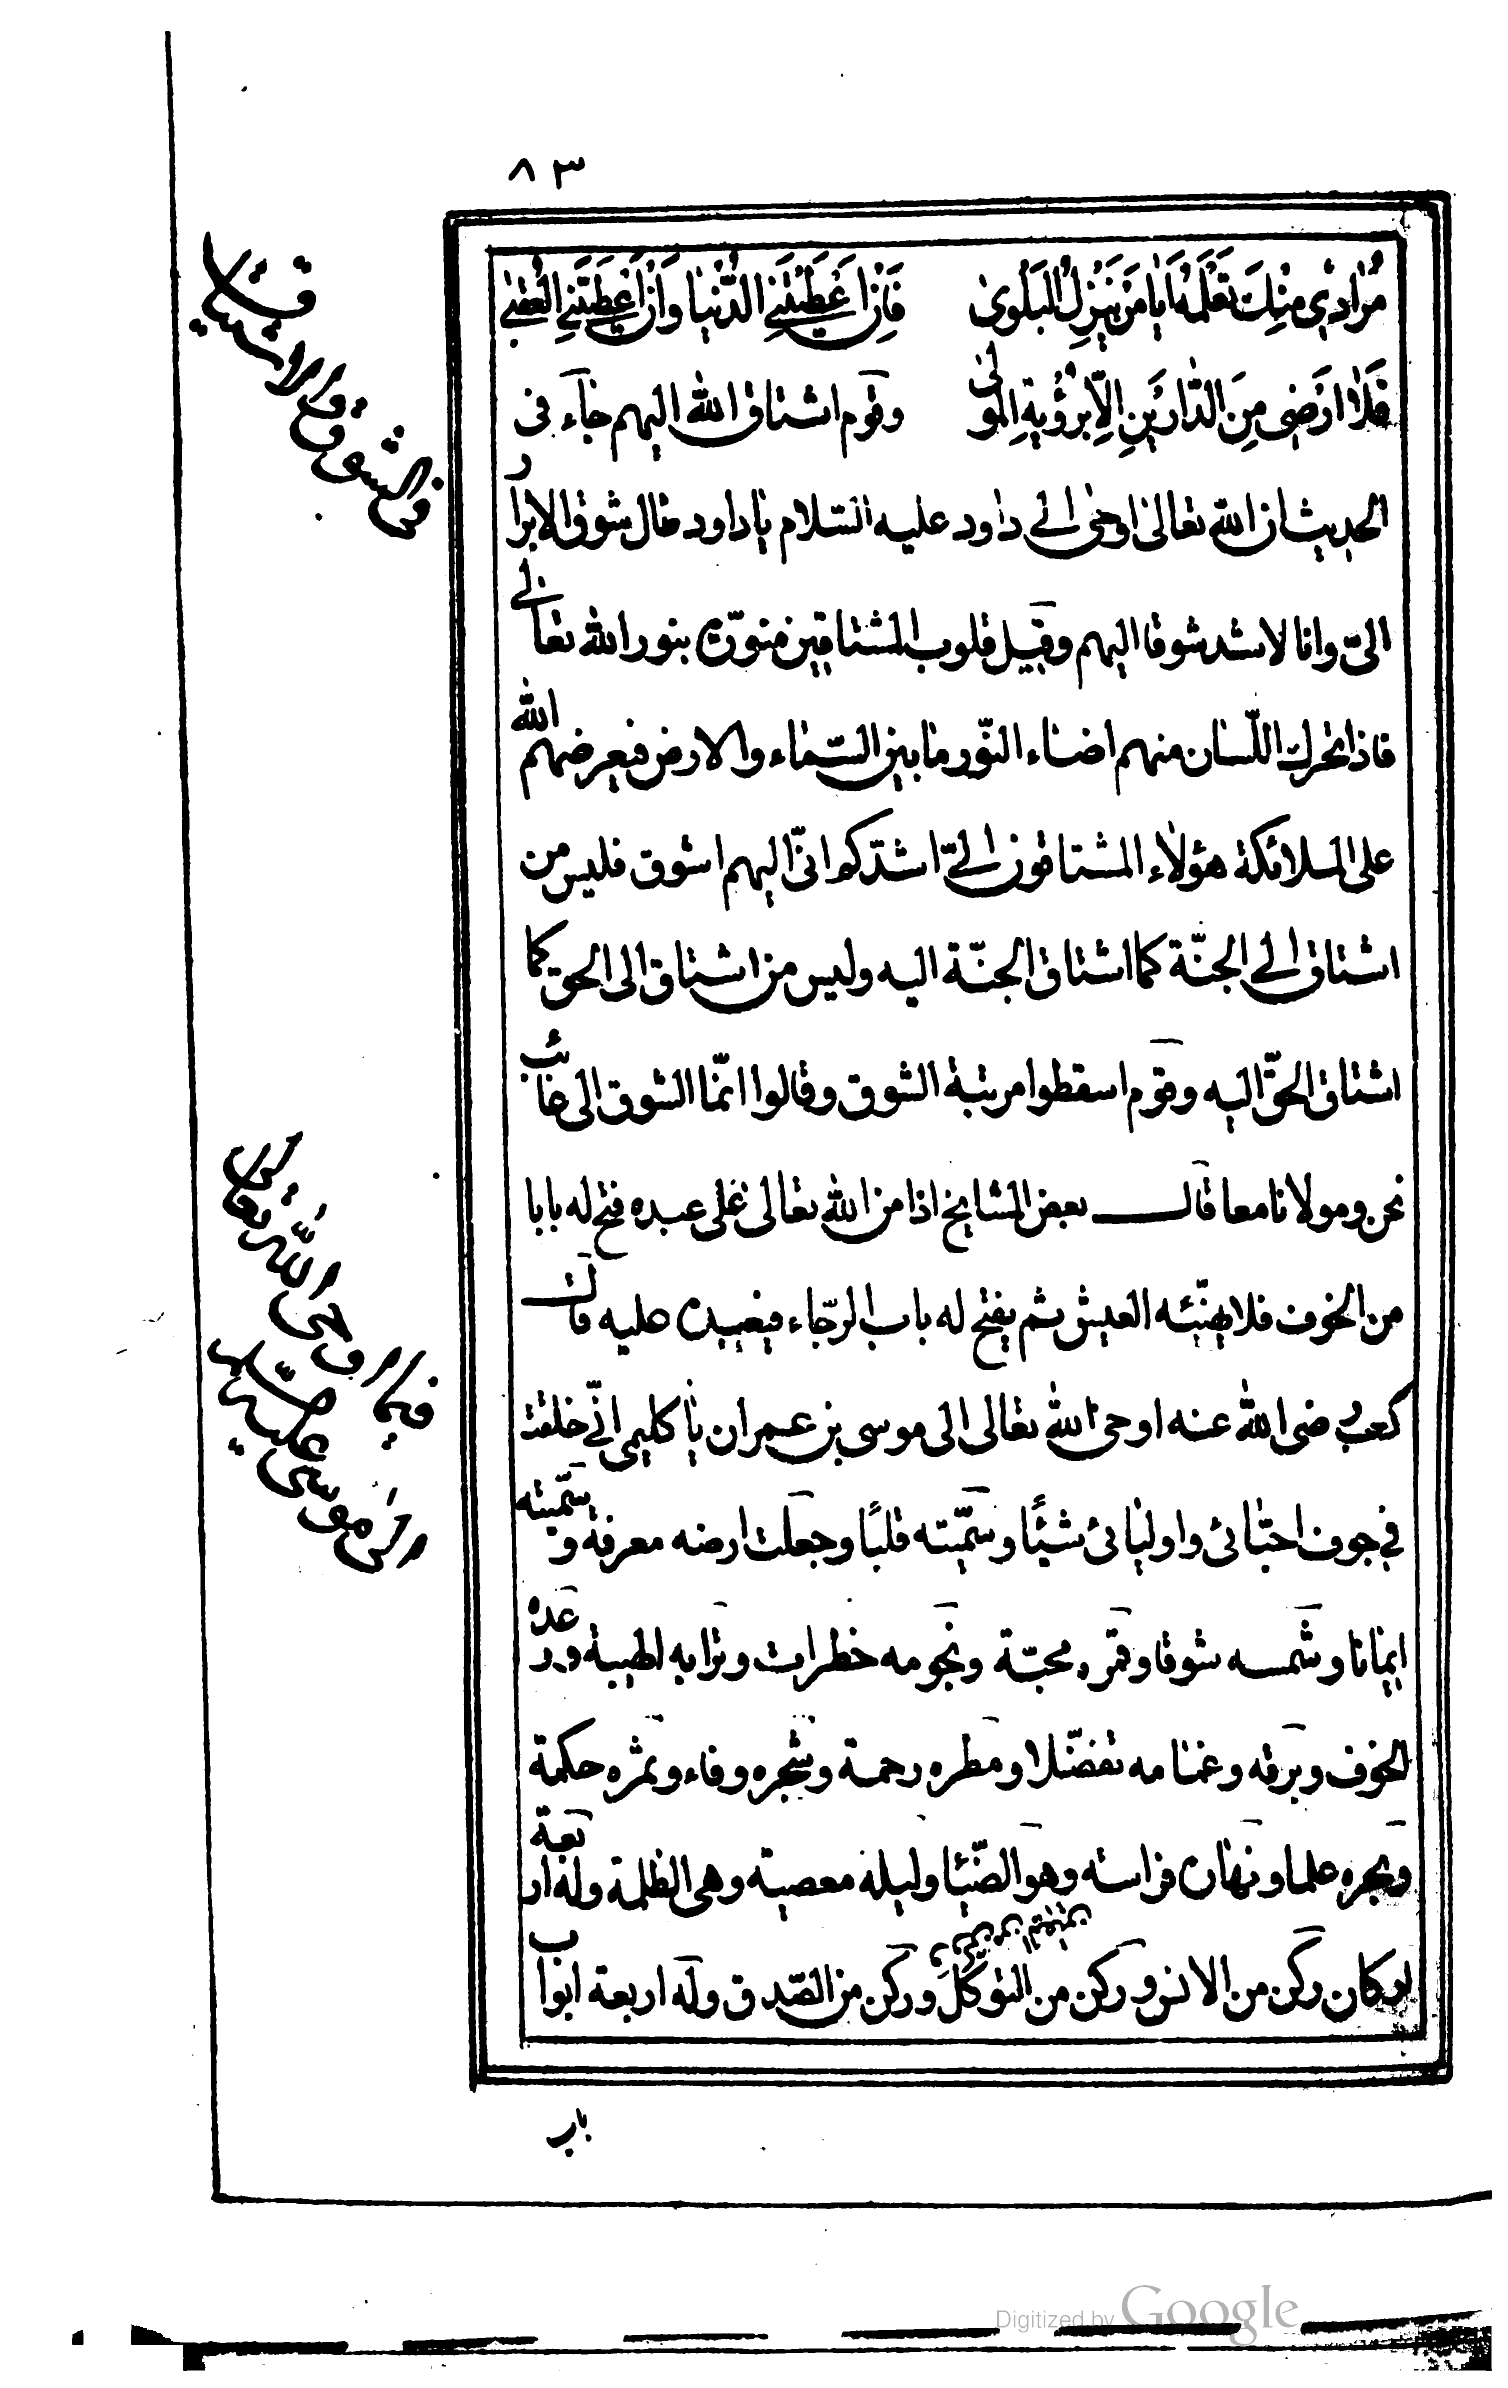 ٨٣
مُرَادِي مِنْكَ تَعْلَمُهُ اَيَا مَنْ يُنْزِلُ البَلْوىٰ فَاِنْ اَعْطَيْتَنِي الدُّنْيَا وَاِنْ اَعْطَيْتَنِي العُقْبٰى
فَلَا اَرْضٰى مِنَ الدَّارَيْنِ اِلَّا بِرُؤْيَةِ المَوْلٰى وقوم اشتاق الله اليهم جاء فى
الحديث ان الله تعالى اوحى الى داود عليه السّلام يا داود طال شوق الابرار
الىّ وانا لاشد شوقا اليهم وقيل قلوب المشتاقين منوّرة بنور الله تعالى
فاذا تحرك اللّسان منهم اضاء النّور ما بين السّماء والارض فيعرضهم الله
على الملائكة هؤلاء المشتاقون الىّ اشهدكم انّى اليهم اشوق فليس من
اشتاق الى الجنّة كما اشتاق الجنّة اليه وليس من اشتاق الى الحق كما
اشتاق الحقّ اليه وقوم اسقطوا مرتبة الشوق وقالوا انّما الشوق الى غائب
نحن ومولانا معا قال بعض المشايخ اذا من الله تعالى على عبده فتح له بابا
من الخوف فلا يهنّئه العيش ثم يفتح له باب الرّجاء فيعبده عليه قال
كعب رضى الله عنه اوحى الله تعالى الى موسى بن عمران يا كليمى انّى خلقت
فى جوف احبّائى واوليائى شيئًا وسمّيته قلبًا وجعلت ارضه معرفة وسمّيته
ايمانا وشمسه شوقا وقمره محبّة ونجومه خطرات وترابه لطيبة ورعده
الخوف وبرقه وغمامه تفضّلا ومطره رحمة وشجره وفاء وثمره حكمة
وبحره علما ونهاره فراسته وهو الضّيا وليله معصية وهى الظلمة وله اربعة
اركان ركن من الانس وركن من التوكّل وركن من الصّدق وله اربعة ابواب
باب
فى الشوق والاشتياق
فيما اوحى الله تعالى
الى موسى عليه